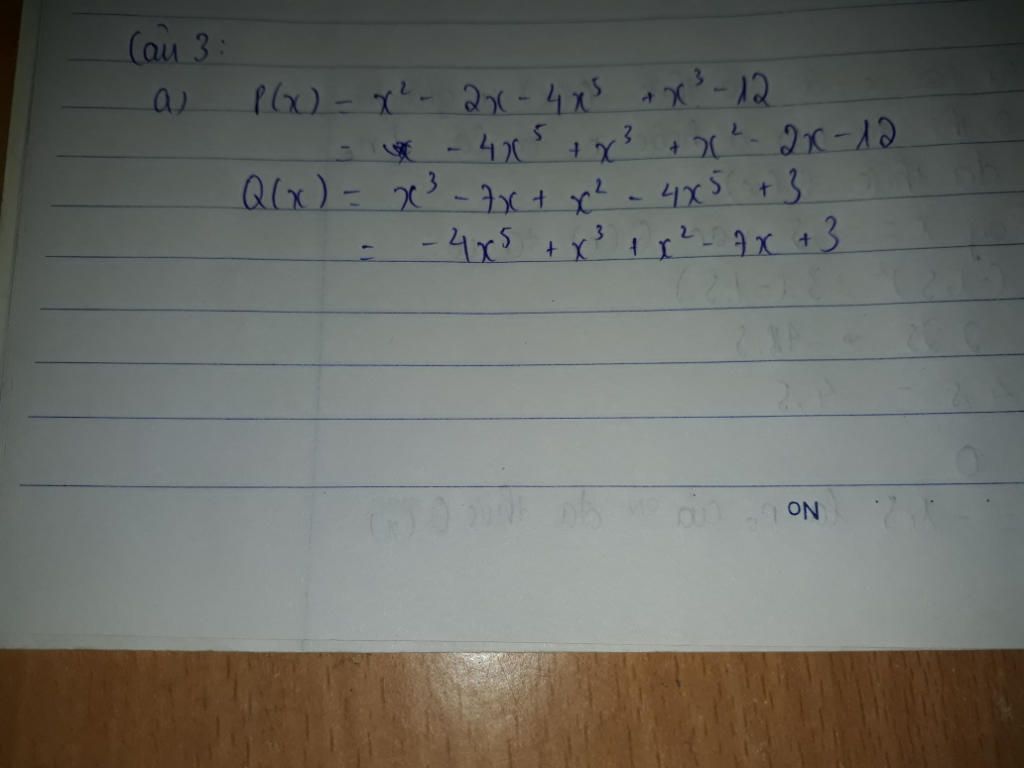 Câu 3:
a) P(x) = x² - 2x - 4x⁵ + x³ - 12
= - 4x⁵ + x³ + x² - 2x - 12
Q(x) = x³ - 7x + x² - 4x⁵ + 3
= - 4x⁵ + x³ + x² - 7x + 3
No